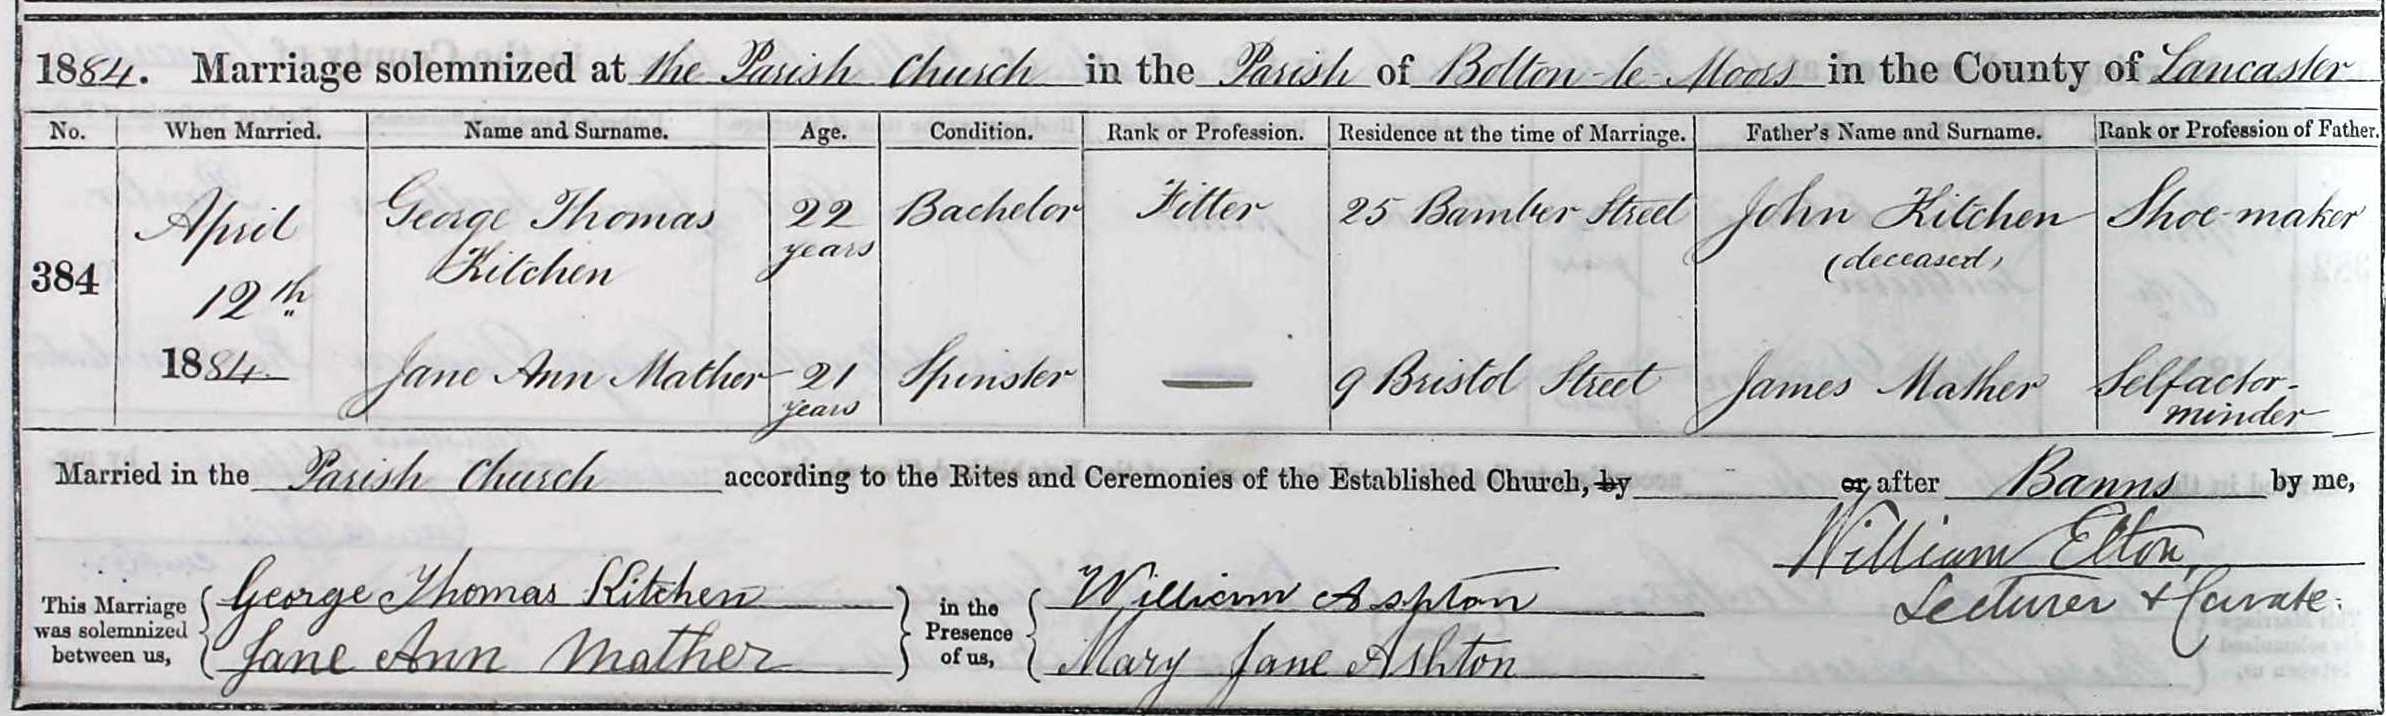 1884. Marriage solemnized at the Parish Church in the Parish of Bolton-le-Moors in the County of Lancaster
No. When Married. Name and Surname. Age. Condition. Rank or Profession. Residence at the time of Marriage. Father's Name and Surname. Rank or Profession of Father.
384 April 12th 1884.
George Thomas Kitchen 22 years Bachelor Fitter 25 Bamber Street John Kitchen (deceased) Shoe-maker
Jane Ann Mather 21 years Spinster — 9 Bristol Street James Mather Selfactor-minder
Married in the Parish Church according to the Rites and Ceremonies of the Established Church, by or after Banns by me,
William Elton,
Lecturer & Curate.
This Marriage was solemnized between us, George Thomas Kitchen
Jane Ann Mather
in the Presence of us, William Aspton
Mary Jane Ashton